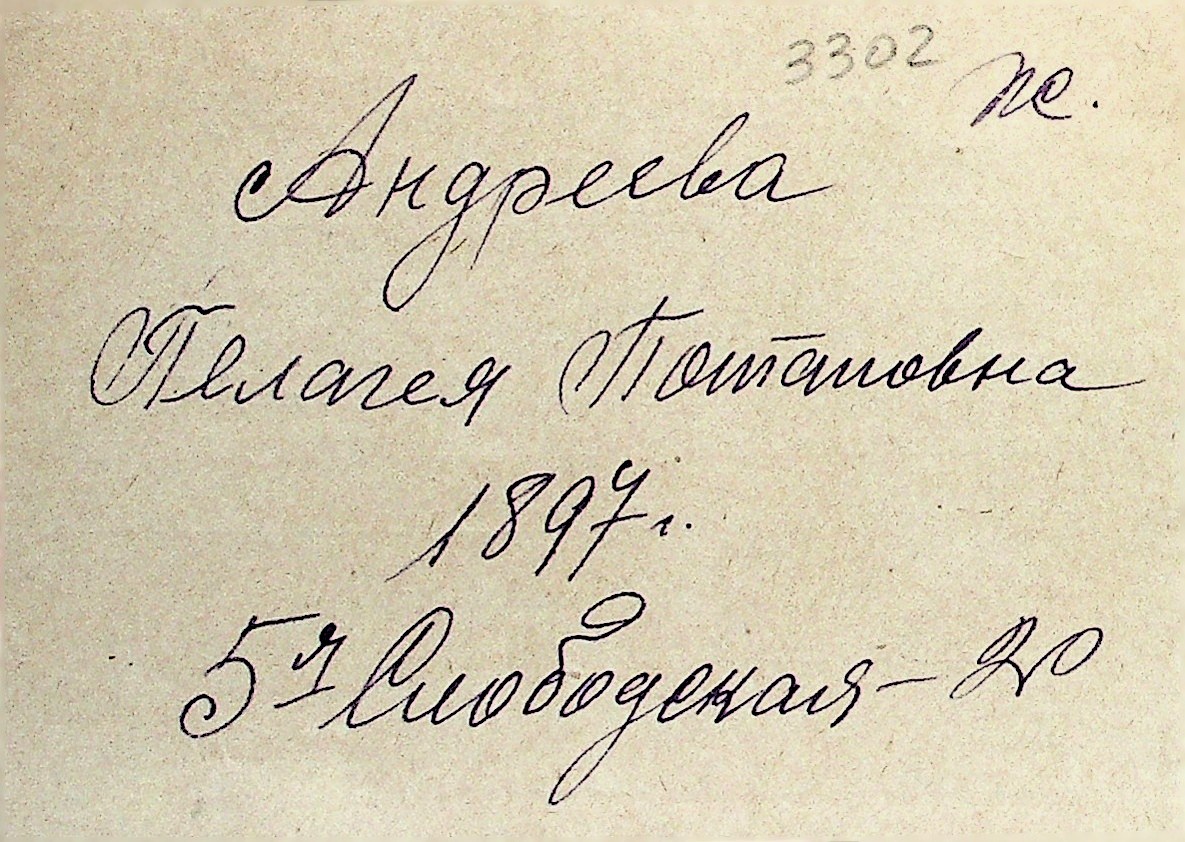 3302
Андреева
Пелагея Потаповна
1897 г.
5я Слободская – 20